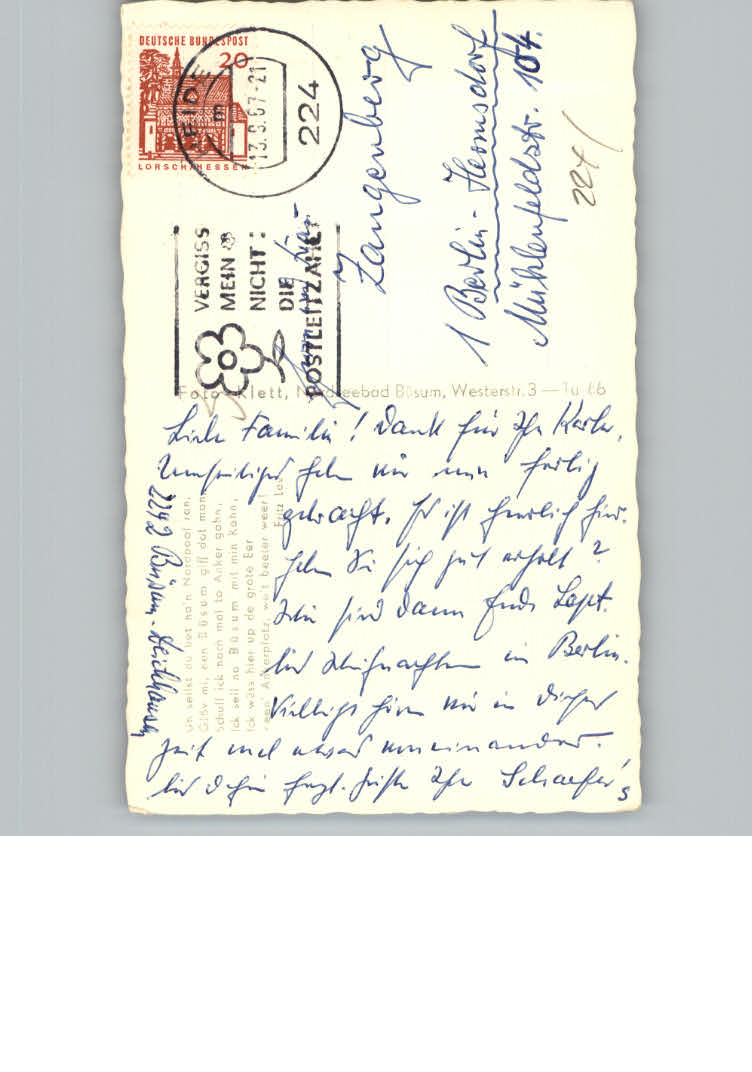 DEUTSCHE BUNDESPOST
20
LORSCH/HESSEN
HEIDE
m
13.9.67-21
224
VERGISS
MEIN
NICHT:
DIE
POSTLEITZAHL
Langenberg
1 Berlin-Hermsdorf
Mühlenfeldstr. 104.
224/
Foto-Klett, Nordseebad Büsum, Westerstr. 3 — Tu 66
Liebe Familie! Dank für Ihre Karte.
Umseitiges haben wir nun fertig
gebracht. Es ist herrlich hier.
Haben Sie sich gut erholt?
Wir sind dann Ende Sept.
bis Weihnachten in Berlin.
Vielleicht hören wir in dieser
Zeit mal etwas voneinander.
Bis dahin herzl. Grüße Ihre Schaefer's
2242 Büsum-Deichhausen
Un seilst du bet na'n Nordpool ran,
Glöv mi, een Büsum giff dat man,
Schull ick noch mal to Anker gahn,
Ick seil na Büsum mit min Kahn,
Ick wüss hier up de grote Eer
keen' Ankerplatz, wo't beeter weer!
Fritz